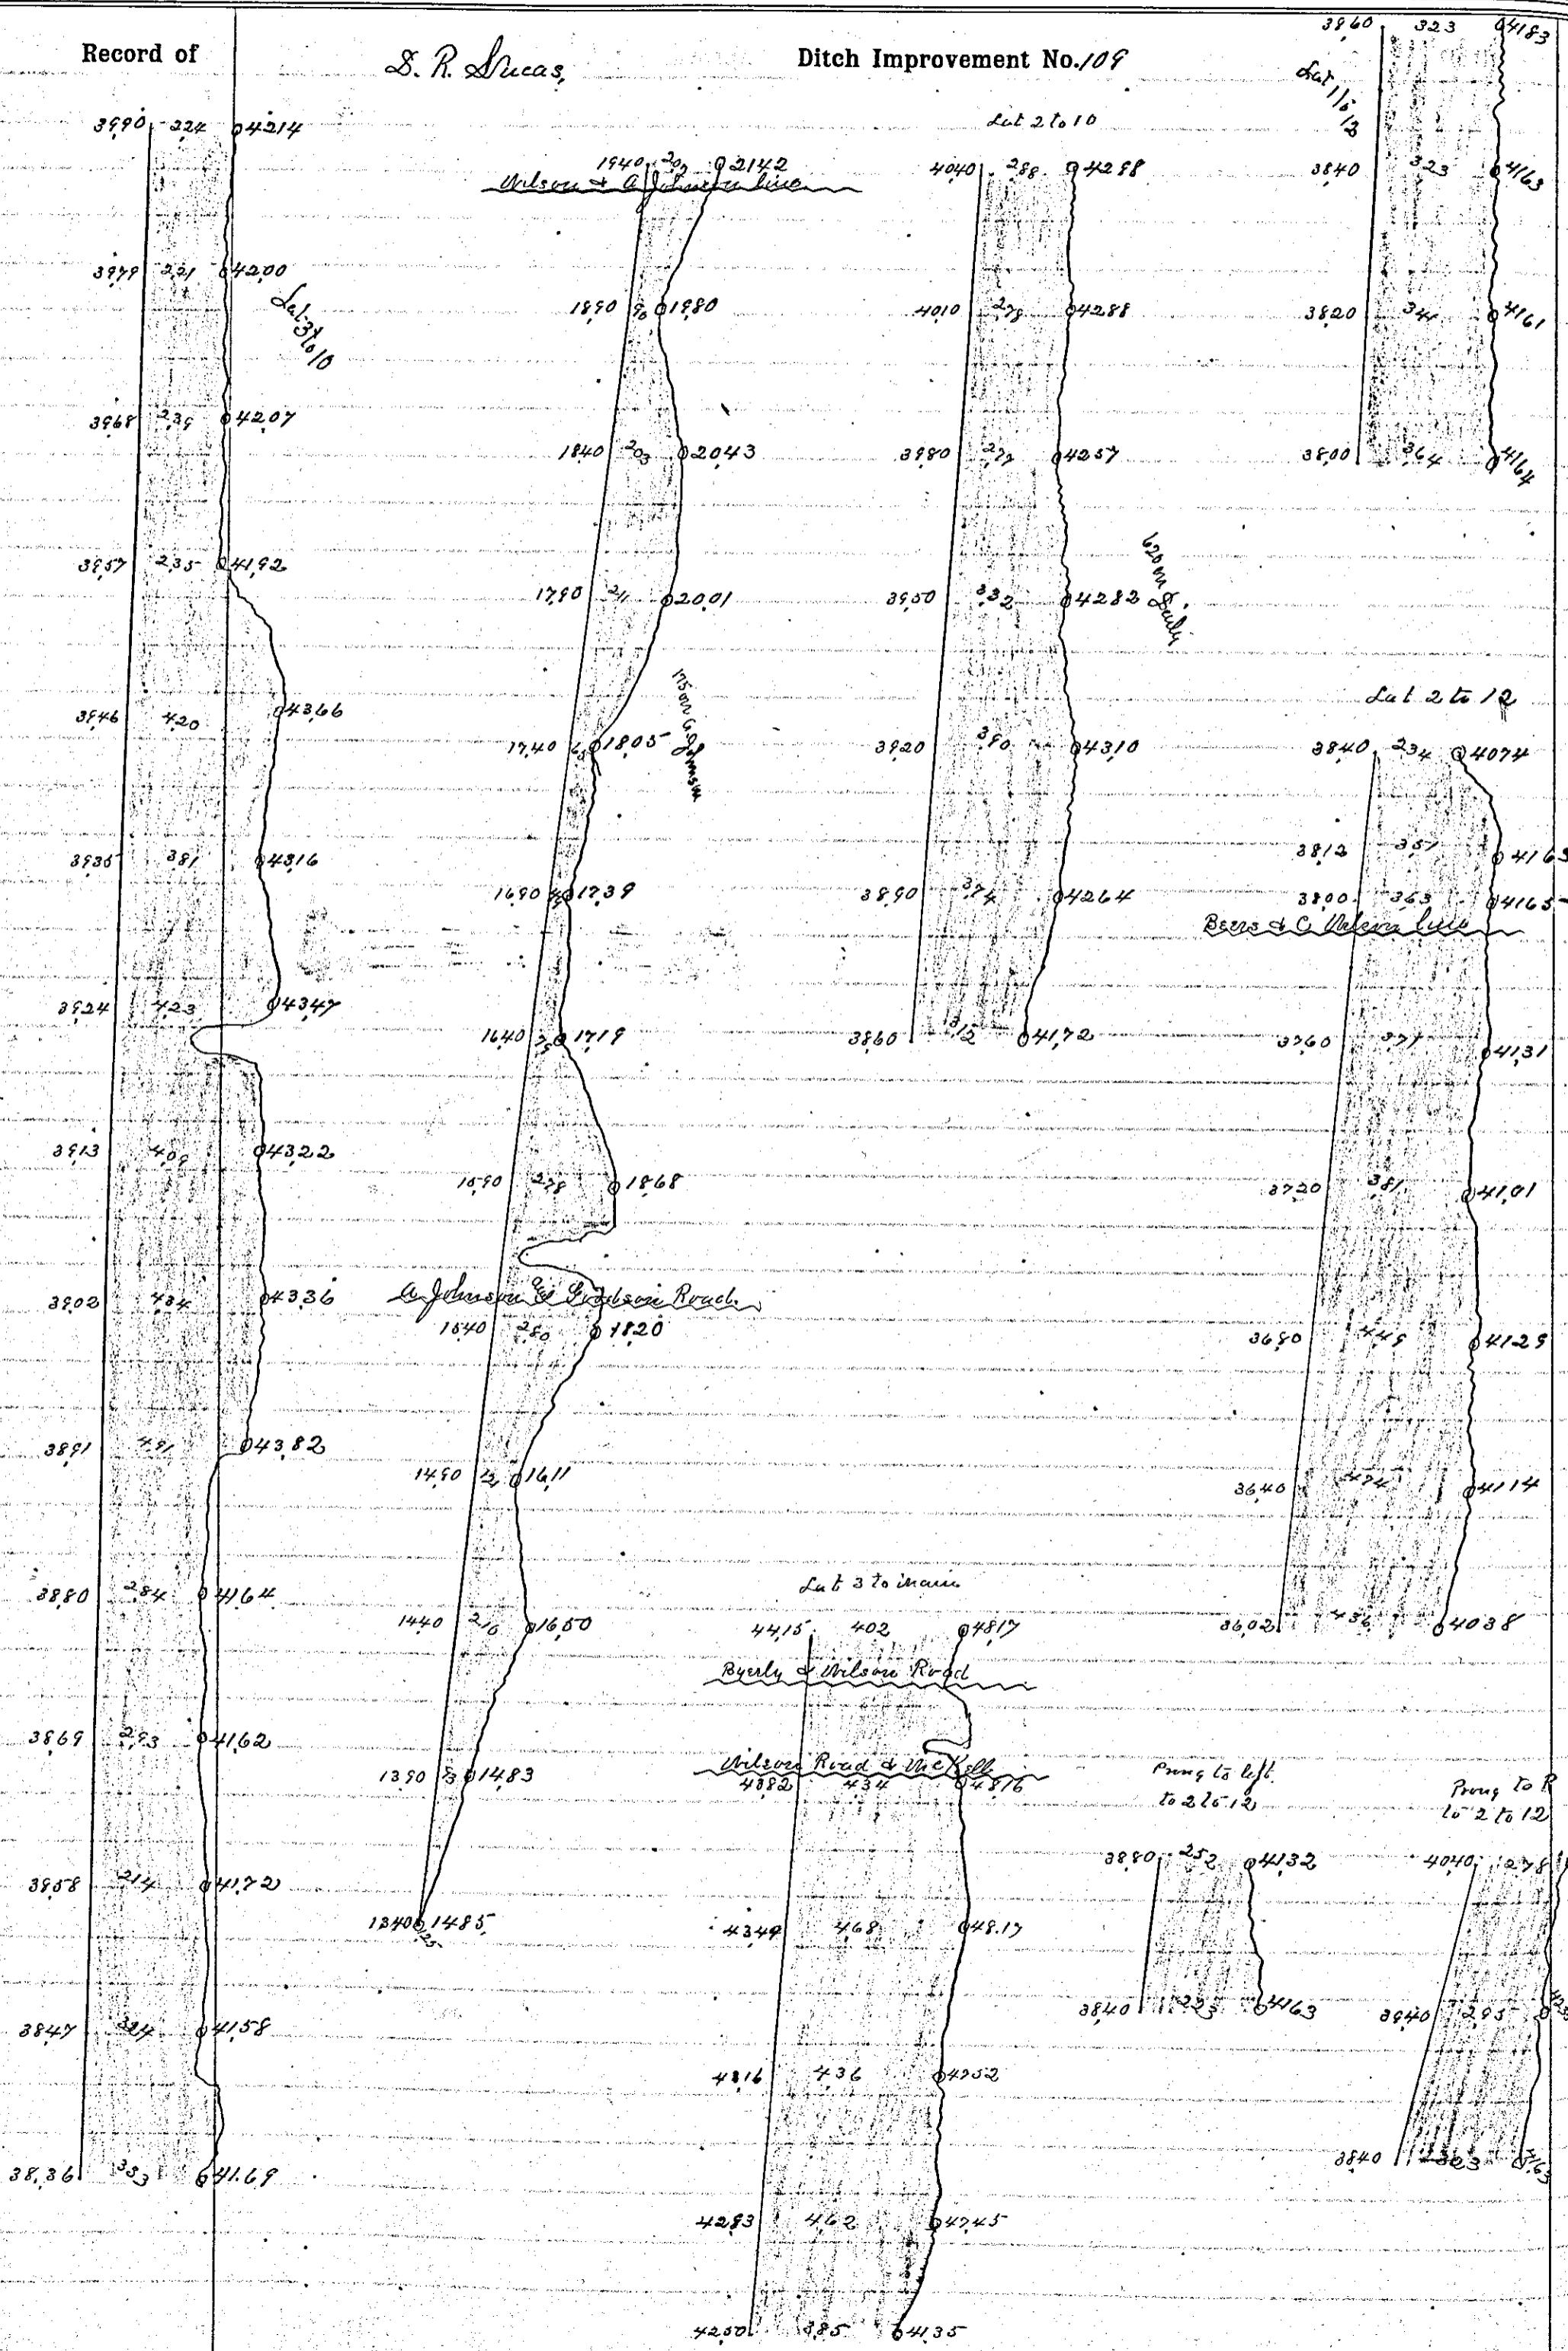 Record of
D. R. Lucas,
Ditch Improvement No. 109
3990 224 4214
3979 221 4200
Lat 3 to 10
3968 239 4207
3957 235 4192
3946 420 4366
3935 381 4316
3924 423 4347
3913 409 4322
3902 434 4336
3891 491 4382
3880 284 4164
3869 293 4162
3858 314 4172
3847 4158
3836 333 4169
1940 202 2142
Wilson & A Johnson line
1890 90 1980
1840 203 2043
1790 211 2001
175 on A Johnson
1740 65 1805
1690 49 1739
1640 79 1719
1590 278 1868
A Johnson & Road
1540 280 1820
1490 121 1611
1440 210 1650
1390 93 1483
1340 1485
Lat 2 to 10
4040 288 4288
4010 278 4288
3980 277 4257
3950 332 4282
620 on
3920 390 4310
3890 374 4264
3860 312 4172
Lat 3 to Main
4415 402 4817
Byerly & Wilson Road
Wilson Road &
4382 434 4816
4349 468 4817
4316 436 4752
4283 462 4745
4250 4135
Lat 1 to 13
3860 323 4183
3840 323 4163
3820 341 4161
3800 364 4164
Lat 2 to 12
3840 234 4074
3812 351 4163
3800 365 4165
Beers & C Nelson line
3760 371 4131
3720 381 4101
3680 449 4129
3640 474 4114
3602 436 4038
Prong to left
to 2 to 12
3880 252 4132
3840 323 4163
Prong to R
to 2 to 12
4040 278
3940 295
3840 323 4163